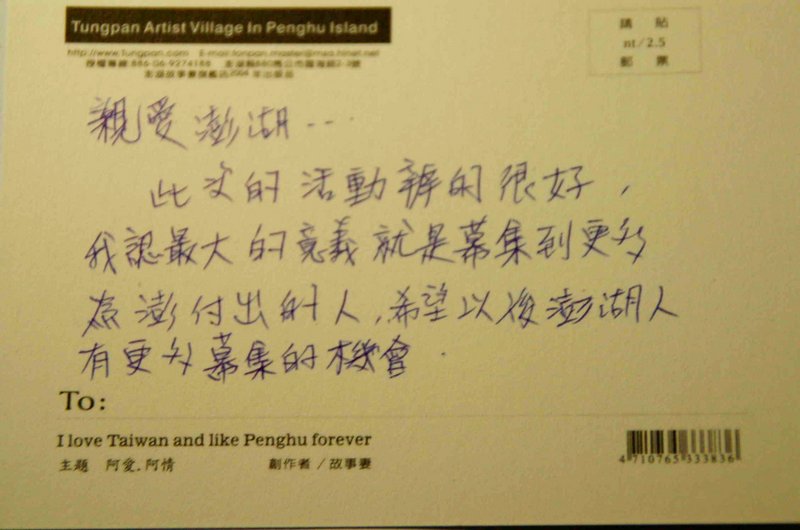 Tungpan Artist Village In Penghu Island
http://www.tungpan.com E-mail:tonpan.master@msa.hinet.net
授權專線 886-06-9274188
2006 年出版品
請 貼
nt/2.5
郵 票
親愛澎湖...
此次的活動辦的很好，
我認最大的意義就是募集到更多
為澎付出的人,希望以後澎湖人
有更多募集的機會.
To:
I love Taiwan and like Penghu forever
主題 阿愛.阿情 創作者 / 故事妻
4 710765 333836